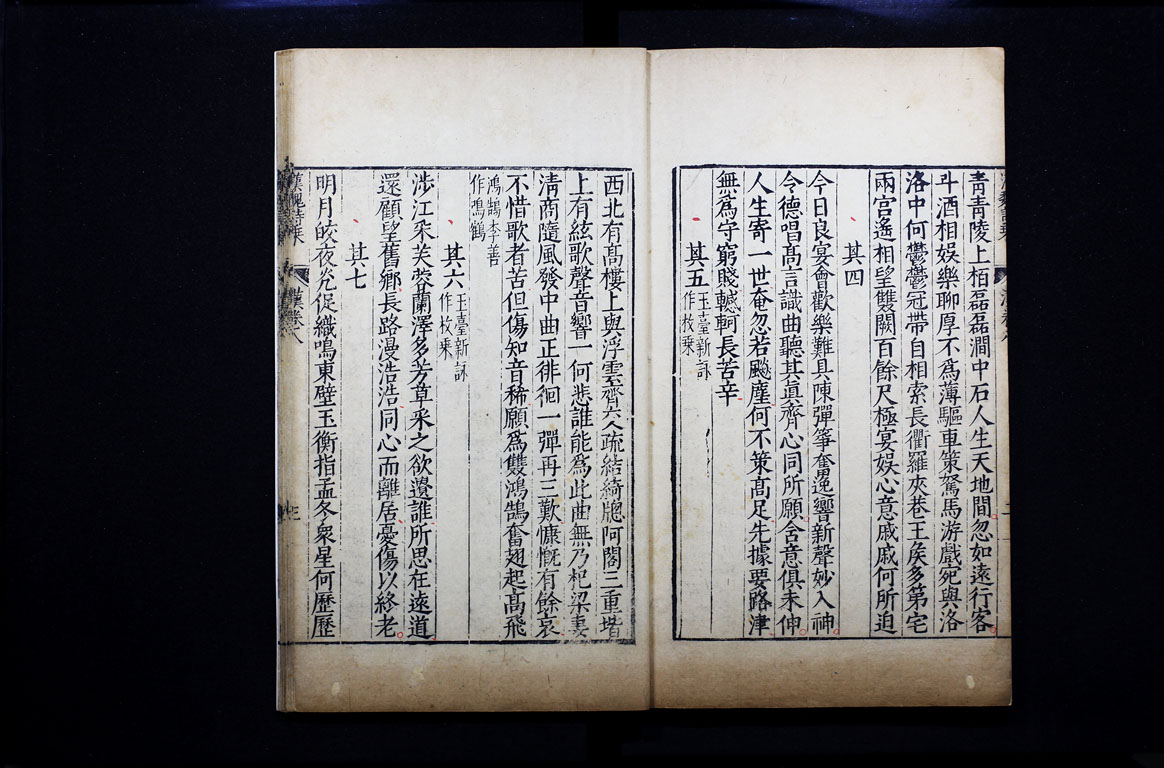 青青陵上栢磊磊澗中石人生天地間忽如遠行客
斗酒相娛樂聊厚不為薄驅車策駑馬游戲宛與洛
洛中何鬱鬱冠帶自相索長衢羅夾巷王矦多第宅
兩宫遙相望雙闕百餘尺極宴娛心意戚戚何所迫
其四
今日良宴會歡樂難具陳彈箏奮逸響新聲妙入神
令德唱髙言識曲聽其真齊心同所願含意俱未伸
人生寄一世奄忽若飈塵何不策髙足先據要路津
無為守窮賤轗軻長苦辛
其五
玉臺新詠
作枚乗
西北有髙樓上與浮雲齊交疏結綺牕阿閣三重堦
上有絃歌聲音響一何悲誰能為此曲無乃杞梁妻
淸商隨風發中曲正徘徊一彈再三歎慷慨有餘哀
不惜歌者苦但傷知音稀願為雙鴻鵠奮翅起髙飛
鴻鵠李善
作鳴鶴
其六
玉臺新詠
作枚乗
涉江采芙蓉蘭澤多芳草采之欲遺誰所思在遠道
還顧望舊鄉長路漫浩浩同心而離居憂傷以終老
其七
明月皎夜光促織鳴東壁玉衡指孟冬衆星何歷歷
漢魏詩乘
漢卷八